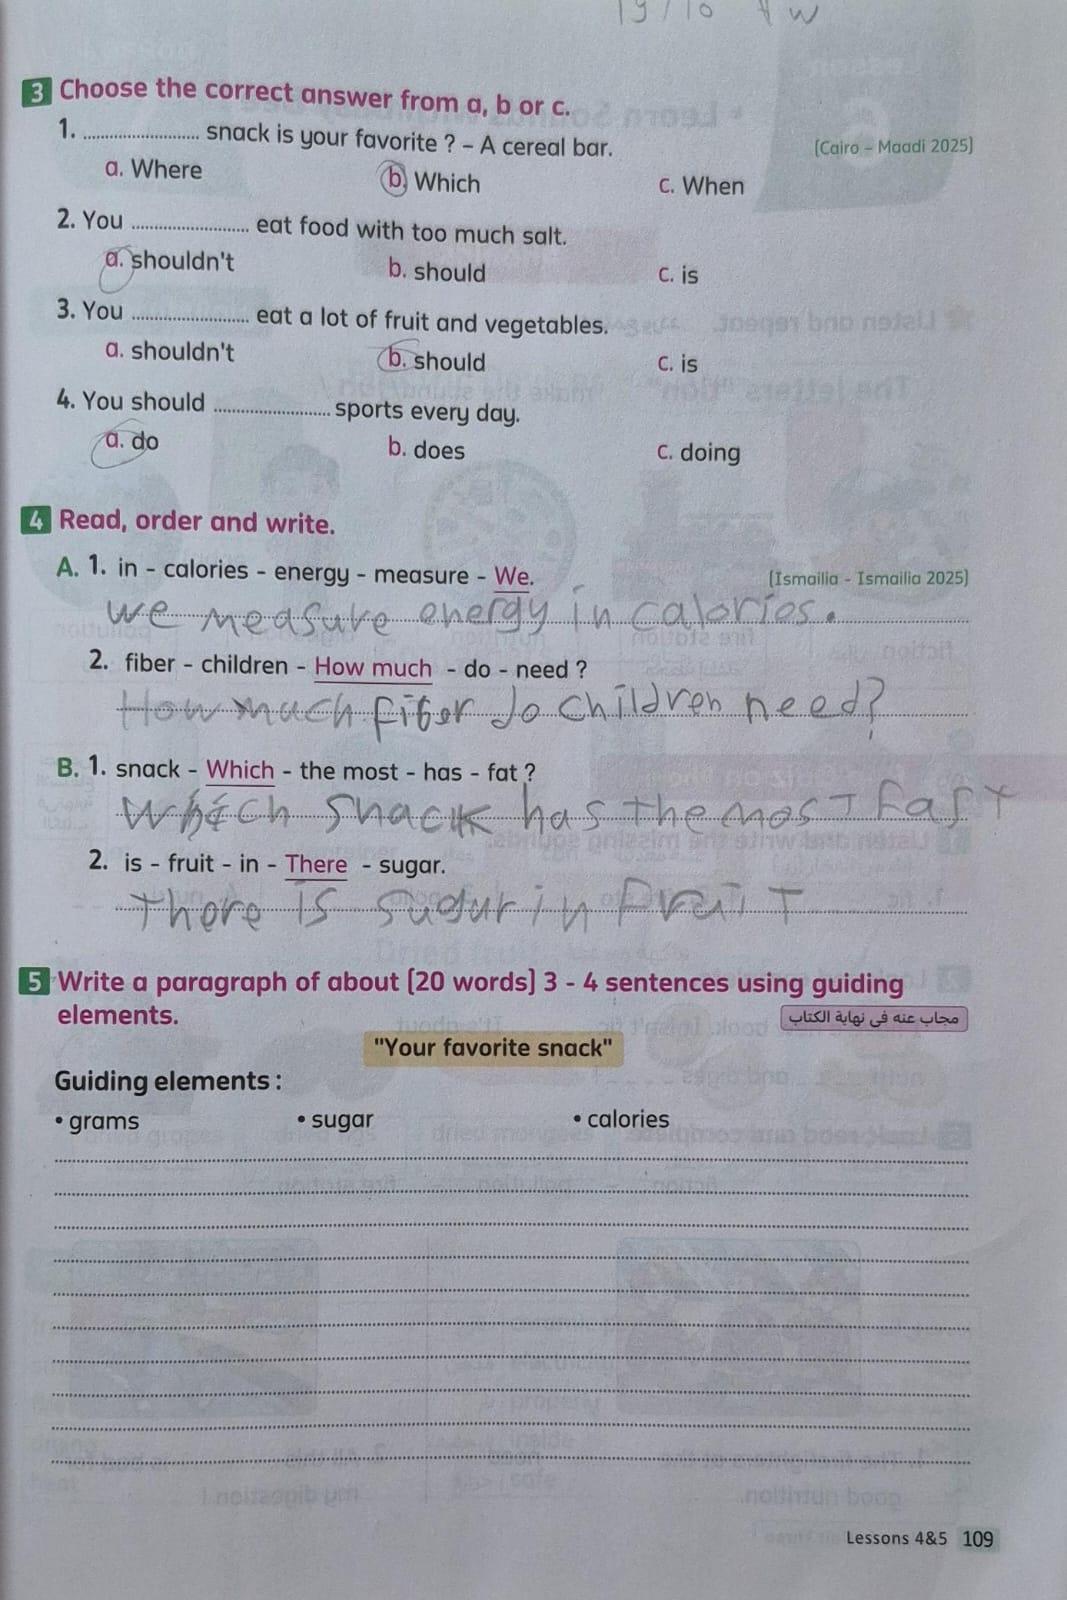 19/10 HW
3 Choose the correct answer from a, b or c.
1. ........................ snack is your favorite ? – A cereal bar.
[Cairo – Maadi 2025]
a. Where b. Which c. When
2. You ........................ eat food with too much salt.
a. shouldn't b. should c. is
3. You ........................ eat a lot of fruit and vegetables.
a. shouldn't b. should c. is
4. You should ........................ sports every day.
a. do b. does c. doing
4 Read, order and write.
A. 1. in – calories – energy – measure – We.
[Ismailia - Ismailia 2025]
we measure energy in calories.
2. fiber – children – How much – do – need ?
How much fiber do children need?
B. 1. snack – Which – the most – has – fat ?
Which snack has the most fast
2. is – fruit – in – There – sugar.
There is sugur in fruit
5 Write a paragraph of about [20 words] 3 - 4 sentences using guiding
elements.
مجاب عنه فى نهاية الكتاب
"Your favorite snack"
Guiding elements :
• grams • sugar • calories
Lessons 4&5 109